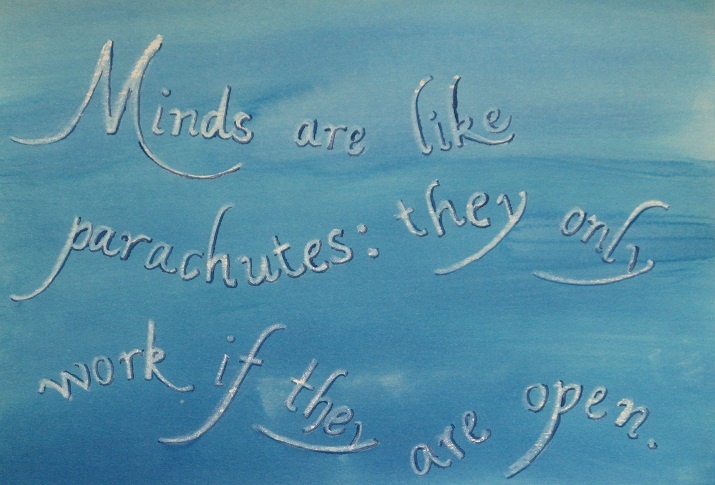 Minds are like
parachutes: they only
work if they are open.